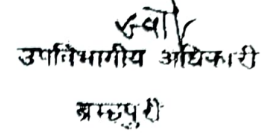 उपविभागीय अधिकारी
ब्रम्हपुरी